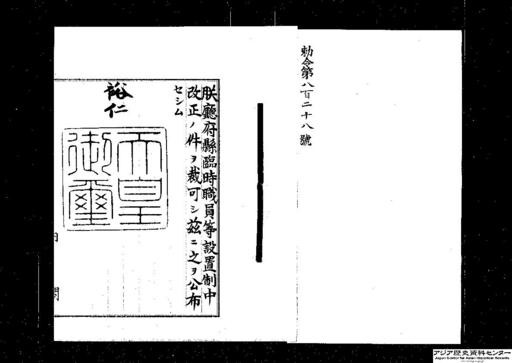 勅令第八百二十八號
朕廳府縣臨時職員等設置制中
改正ノ件ヲ裁可シ茲ニ之ヲ公布
セシム
裕仁
天皇
御璽
アジア歴史資料センター
Japan Center for Asian Historical Records